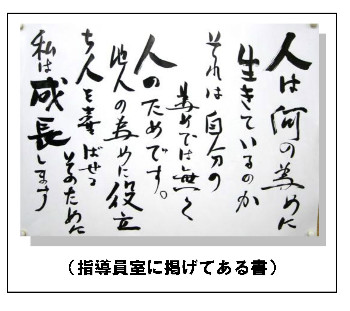 人は何の為めに
生きているのか
それは自分の
為めでは無く
人のためです。
他人の為めに役立
ち人を喜ばせる
そのために
私は成長します
(指導員室に掲げてある書)